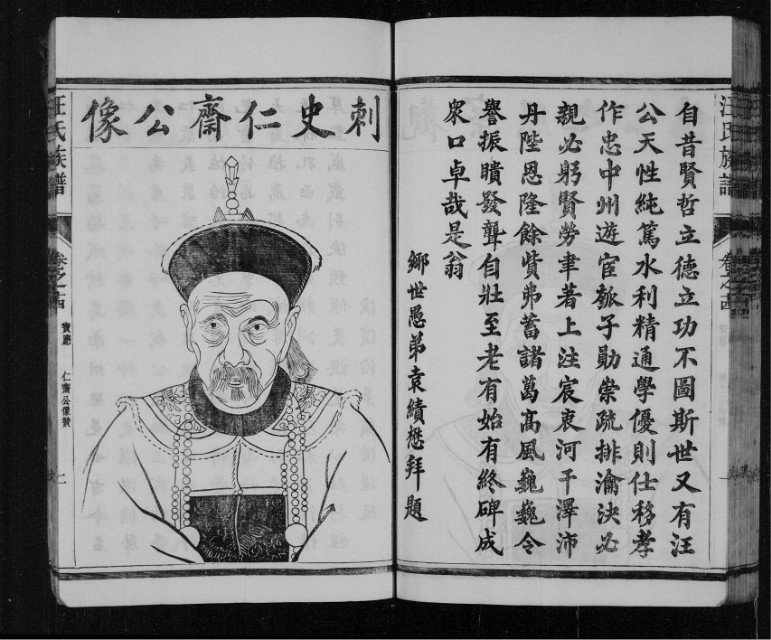 自昔賢哲立德立功不圖斯世又有汪
公天性純篤水利精通學優則仕移孝
作忠中州遊宦子勛崇疏排瀹決必
親必躬賢勞聿著上注宸衷河干澤沛
丹陛恩隆餘貲弗蓄諸萬高風巍巍令
譽振聵發聾自壯至老有始有終碑成
衆口卓哉是翁
鄉世愚弟袁績懋拜題
刺史仁齋公像
汪氏族譜
卷之
仁齋公像贊